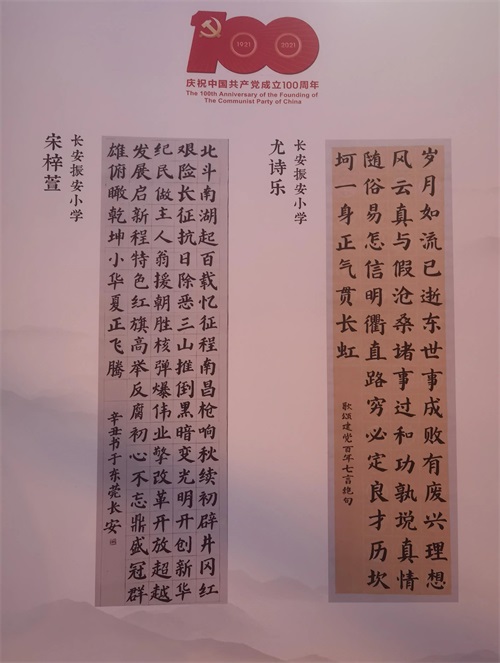 100
1921
2021
庆祝中国共产党成立100周年
The 100th Anniversary of the Founding of
The Communist Party of China
岁月如流已逝东世事成败有废兴理想
风云真与假沧桑诸事过和功孰说真情
随俗易怎信明衢直路穷必定良才历坎
坷一身正气贯长虹
歌颂建党百年七言绝句
长安振安小学
尤诗乐
北斗南湖起百载忆征程南昌枪响秋续初辟井冈红
艰险长征抗日除恶三山推倒黑暗变光明开创新华
纪民做主人翁援朝胜核弹爆伟业擎改革开放超越
发展启新程特色红旗高举反腐初心不忘鼎盛冠群
雄俯瞰乾坤小华夏正飞腾
辛丑书于东莞长安
长安振安小学
宋梓萱